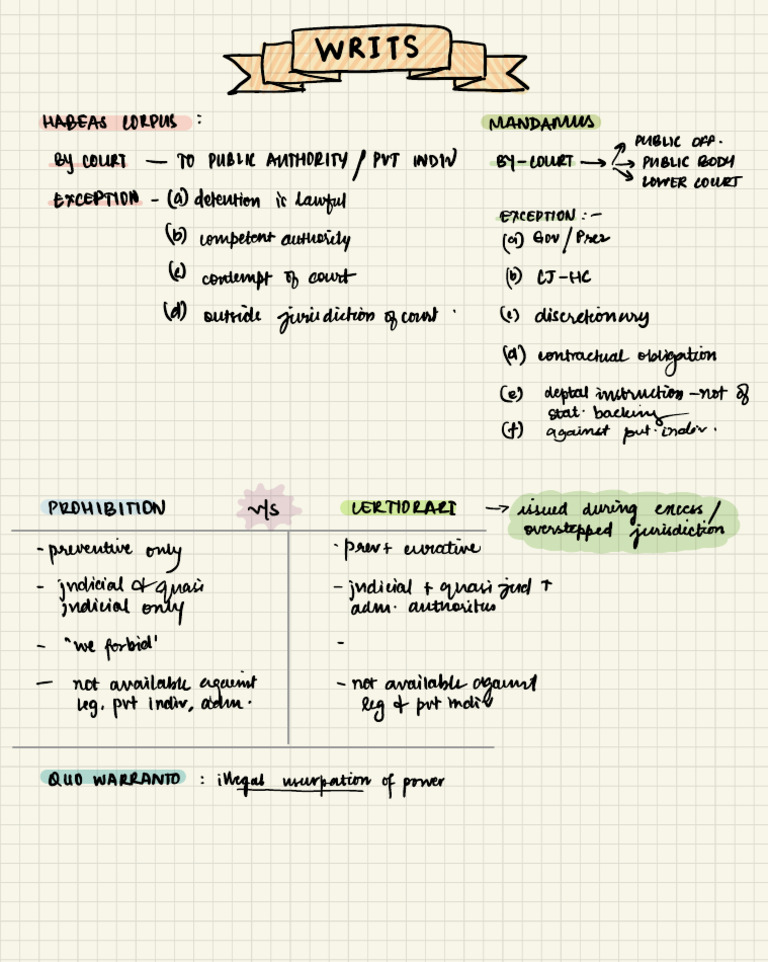 WRITS
HABEAS CORPUS :
BY COURT — TO PUBLIC AUTHORITY / PVT INDIV
EXCEPTION - (a) detention is lawful
(b) competent authority
(c) contempt of court
(d) outside jurisdiction of court .
MANDAMUS
BY-COURT → PUBLIC OFF.
→ PUBLIC BODY
→ LOWER COURT
EXCEPTION : -
(a) Gov / Prez
(b) CJ-HC
(c) discretionary
(d) contractual obligation
(e) deptal instruction - not of
stat. backing
(f) against pvt. indiv .
PROHIBITION v/s CERTIORARI → issued during excess /
overstepped jurisdiction
- preventive only
- judicial & quasi
judicial only
- "we forbid'
- not available against
leg, pvt indiv, adm.
- prev + curative
- judicial + quasi jud +
adm. authorities
-
- not available against
leg & pvt indiv
QUO WARRANTO : illegal usurpation of power